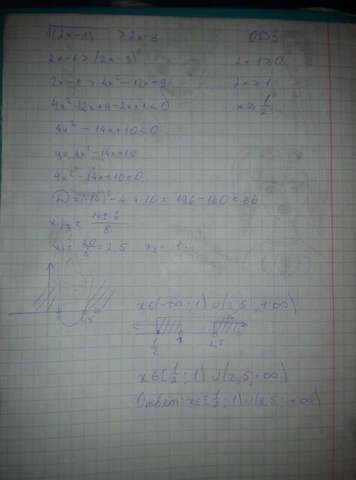 √(2x-1) > 2x-3 ОДЗ
2x-1 > (2x-3)² 2x-1≥0
2x-1 > 4x²-12x+9 2x≥1
4x²-12x+9-2x+1<0 x≥1/2
4x²-14x+10<0
y=4x²-14x+10
4x²-14x+10=0
D=(-14)²-4·4·10=196-160=36
x₁,₂= 14±6/8
x₁= 20/8 =2,5 x₂= 1
x∈(-∞;1)∪(2,5;+∞)
1/2 1 2,5
x∈[1/2;1)∪(2,5;+∞)
Ответ: x∈[1/2;1)∪(2,5;+∞)